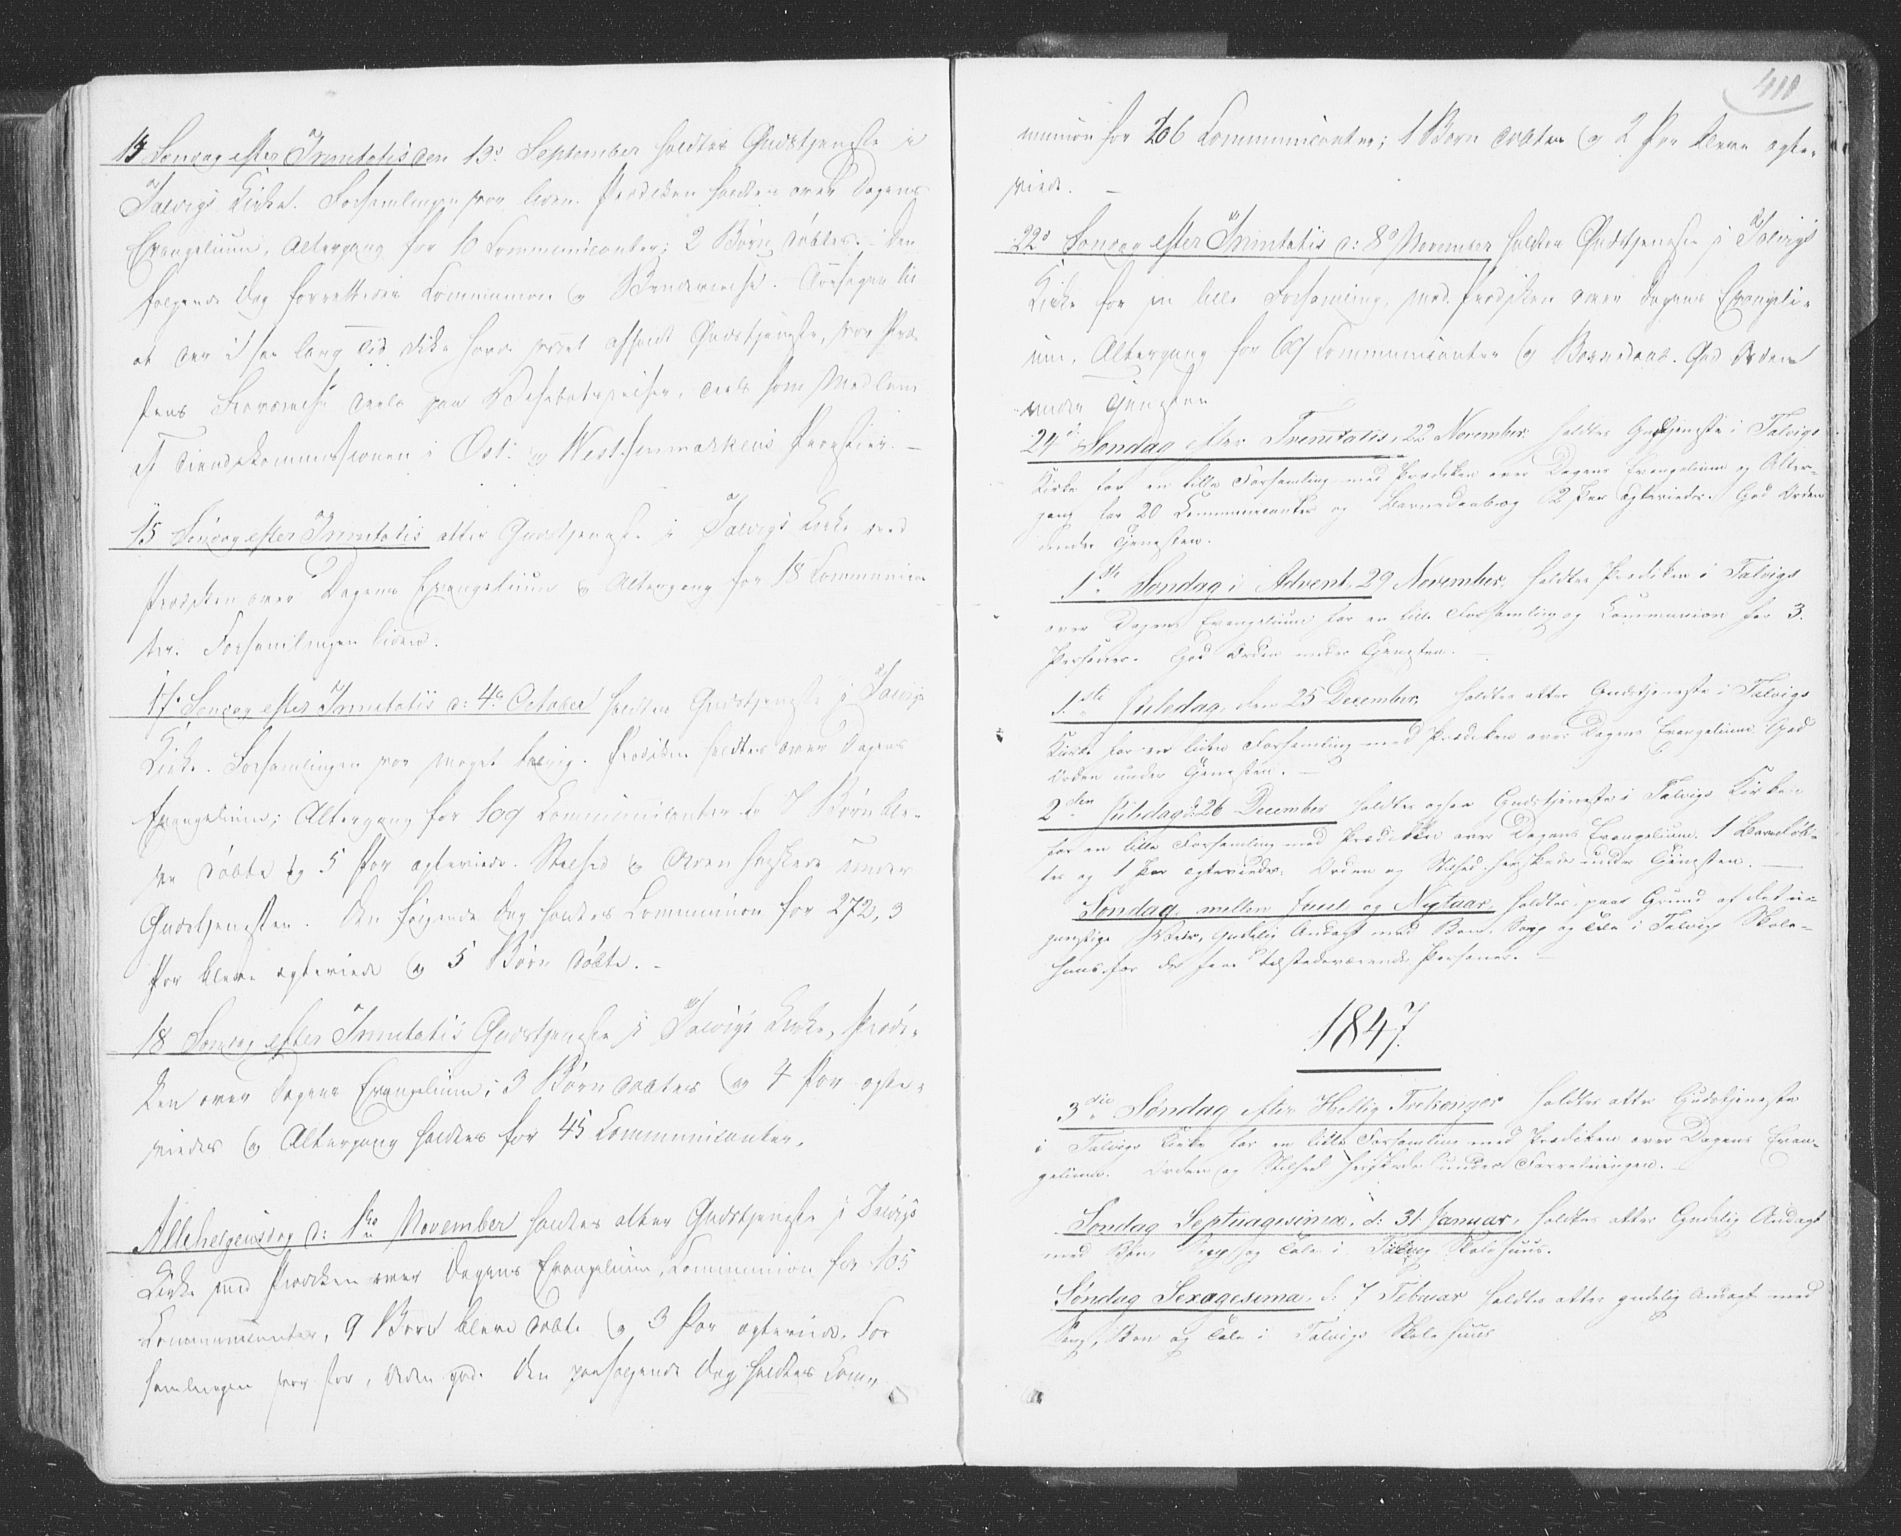 13 Søndag efter Trinitatis den 13de September holdtes Gudstjeneste i
Talvigs Kirke. Forsamlingen var liden. Prædiken holdtes over Dagens
Evangelium, Altergang for 10 Communicanter; 2 Børn døbtes. Den
følgende Dag forrettedes Communion og Brudevielse. Aarsagen til
at der i saa lang Tid ikke havde været afholdt Gudstjeneste, var Præ-
stens Fraværelse deels paa Visitatsreiser, deels som Medlem
af Tiendekommissionen i Øst- og Vestfinmarkens Provstier. –
15 Søndag efter Trinitatis atter Gudstjeneste i Talvigs Kirke med
Prædiken over Dagens Evangelium og Altergang for 18 Communican-
ter. Forsamlingen liden.
17 Søndag efter Trinitatis d: 4de October holdtes Gudstjeneste i Talvigs
Kirke. Forsamlingen var meget talrig. Prædiken holdtes over Dagens
Evangelium; Altergang for 109 Communicanter 7 Børn ble-
ve døbte og 5 Par ægteviede. Stilhed og Orden herskede under
Gudstjenesten. Den følgende Dag holdtes Communion for 272, 3
Par bleve ægteviede og 5 Børn døbte. –
18 Søndag efter Trinitatis Gudstjeneste i Talvigs Kirke, Prædi-
ken over Dagens Evangelium; 3 Børn døbtes og 4 Par ægte-
viedes og Altergang holdtes for 45 Communicanter.
Allehelgensdag d: 1ste November holdtes atter Gudstjeneste i Talvigs
Kirke med Prædiken over Dagens Evangelium, Communion for 105
Communicanter, 9 Børn bleve døbte og 3 Par ægteviede. For
samlingen var stor, Orden god. Den paafølgende Dag holdtes Com-
410
munion for 206 Communicanter; 1 Barn døbtes og 2 Par bleve ægte-
viede. –
22de Søndag efter Trinitatis d: 8de November holdtes Gudstjeneste i Talvigs
Kirke for en lille Forsamling, med Prædiken over Dagens Evangeli-
um, Altergang for 69 Communicanter og Barnedaab. God Orden
under Tjenesten
24de Søndag efter Trinitatis, 22 November holdtes Gudstjeneste i Talvigs
Kirke for en lille Forsamling med Prædiken over Dagens Evangelium og Alter-
gang for 20 Communicanter og Barnedaab og 2 Par ægteviedes. God Orden
under Tjenesten.
1ste Søndag i Advent, 29 November, holdtes Prædiken i Talvigs
over Dagens Evangelium for en lille Forsamling og Communion for 3
Personer. God Orden under Tjenesten. –
1ste Juledag, den 25 December, holdtes atter Gudstjeneste i Talvigs
Kirke for en liden Forsamling med Prædiken over Dagens Evangelium. God
Orden under Tjenesten. –
2den Juledag d: 26 December holdtes ogsaa Gudstjeneste i Talvigs Kirke
for en lille Forsamling med Prædiken over Dagens Evangelium. 1 Barn døb-
tes og 1 Par ægteviedes. Orden og Stilhed herskede under Tjenesten. –
Søndag mellem Juul og Nytaar, holdtes, paa Grund af det u-
gunstige Veir, gudelig Andagt med Bøn, Sang og Tale i Talvigs Skole-
huus for de faae tilstedeværende Personer. –
1847.
3die Søndag efter Hellig Trekonger holdtes atter Gudstjeneste
i Talvigs Kirke for en lille Forsamling med Prædiken over Dagens Evan-
gelium. Orden og Stilhed herskede under Forretningen. –
Søndag Septuagesima, d: 31 Januar, holdtes atter Gudelig Andagt
med Bøn, Sang og Tale i Talvig Skolehuus.
Søndag Sexagesima, d: 7 Februar holdtes atter gudelig Andagt med
Sang, Bøn og Tale i Talvigs Skolehuus